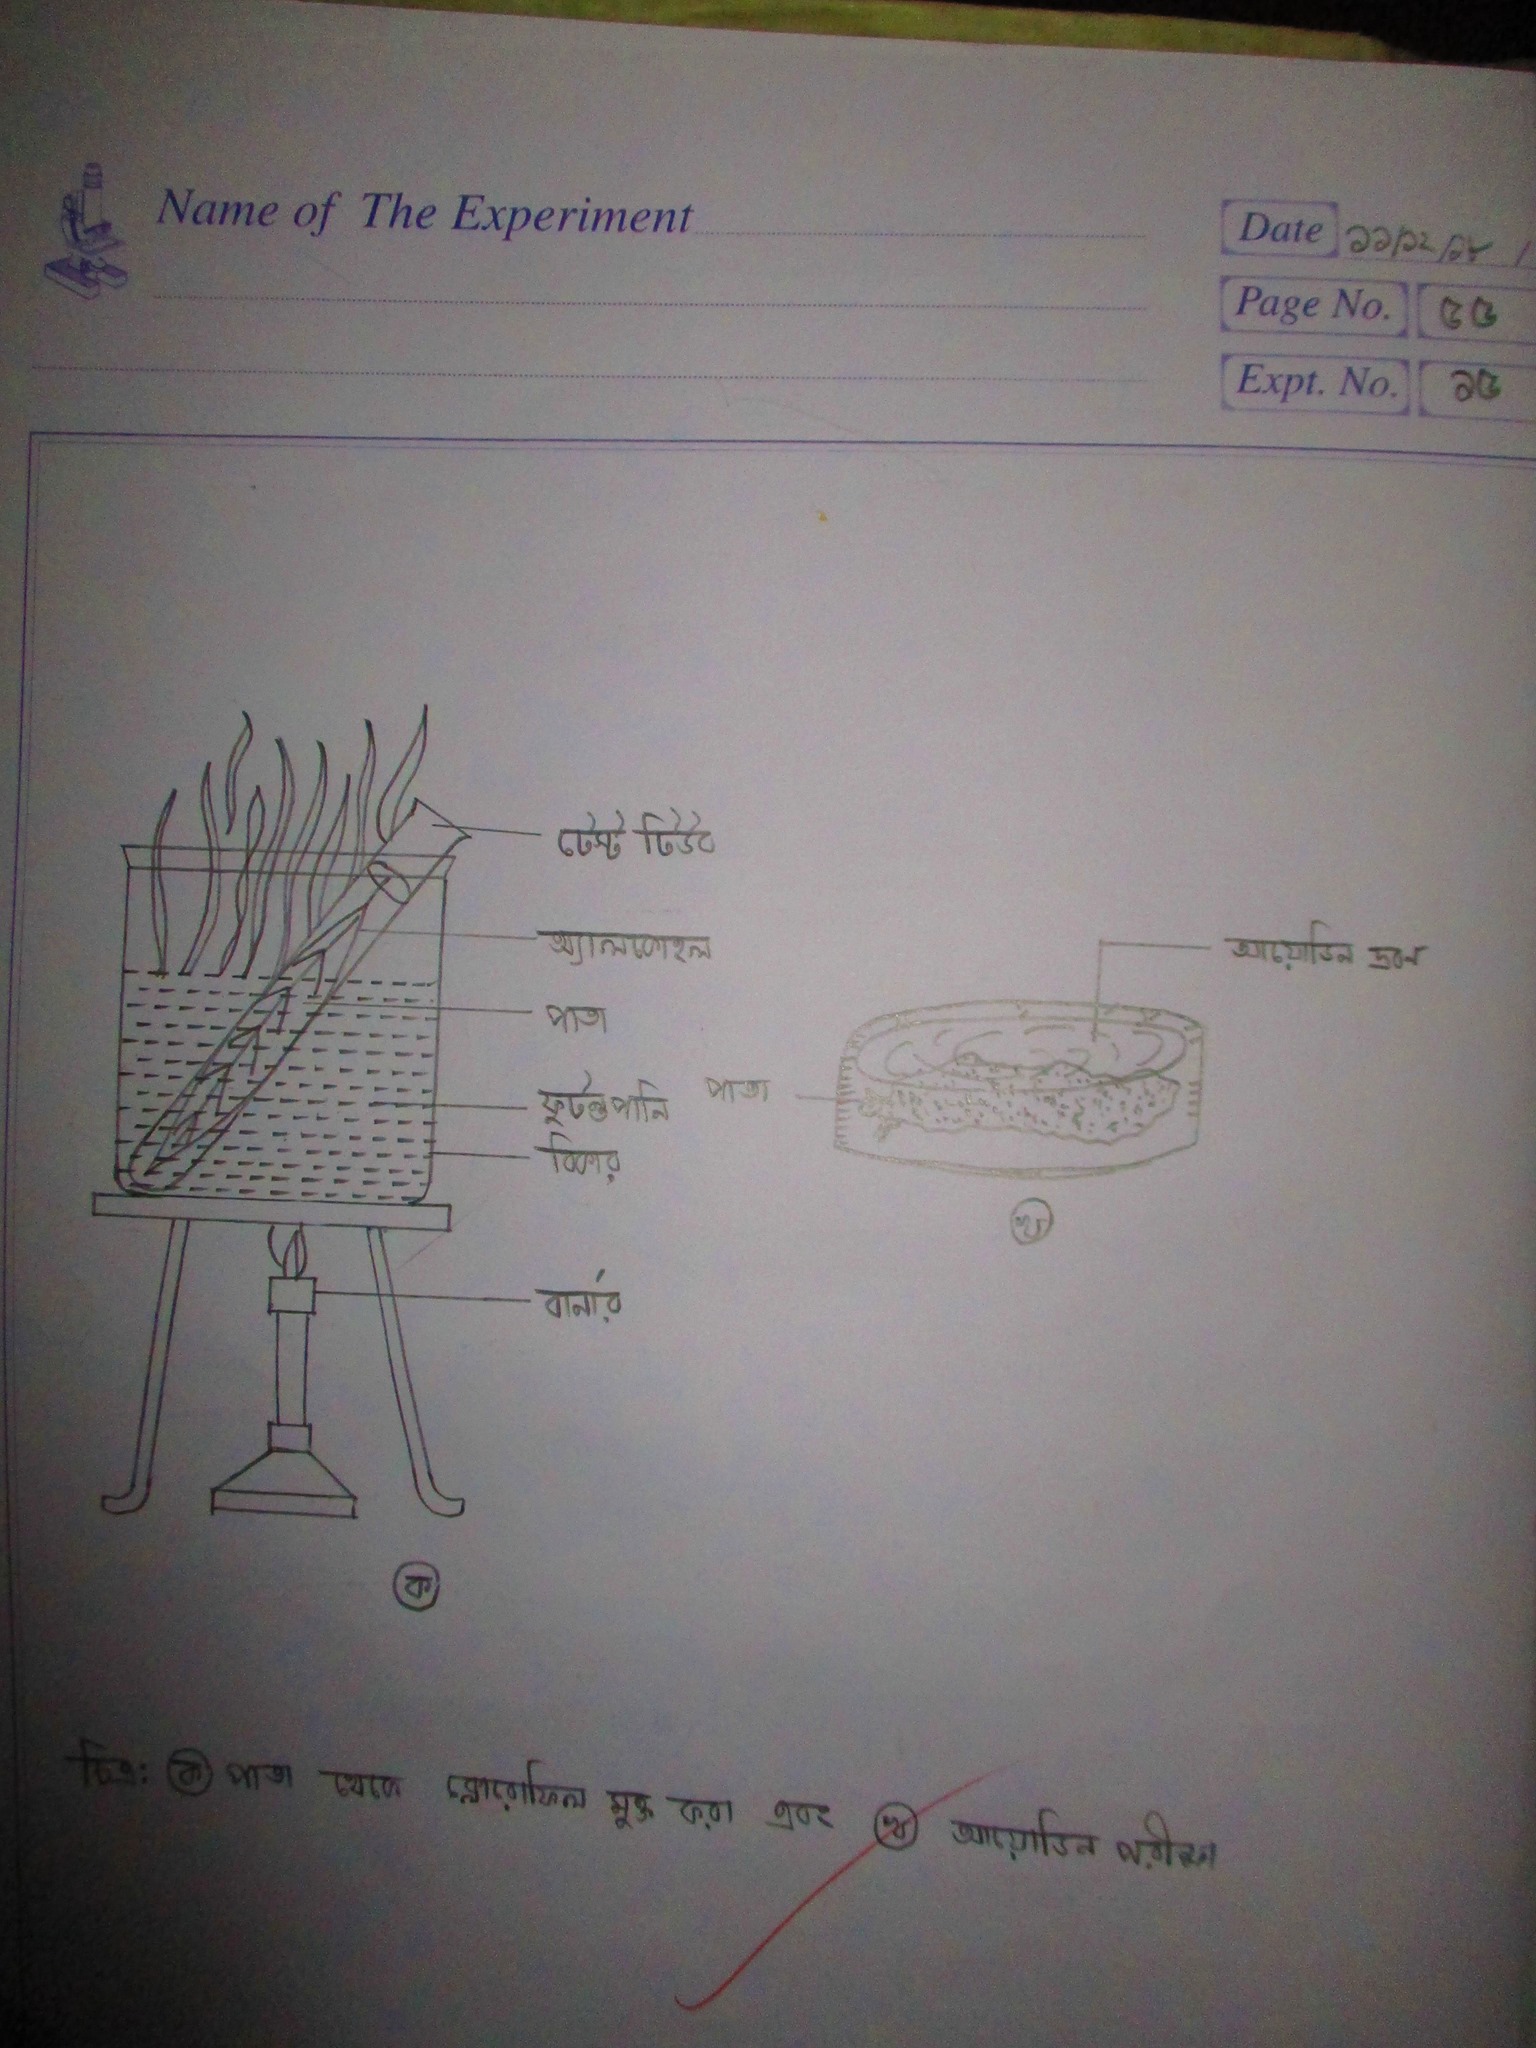 Name of The Experiment
Date ১১/১২/১৮
Page No. ৫৫
Expt. No. ১৫
টেস্ট টিউব
অ্যালকোহল
আয়োডিন দ্রবণ
পাতা
ফুটন্ত পানি
পাতা
বিকার
খ
বার্নার
ক
চিত্র: ক পাতা থেকে ক্লোরোফিল মুক্ত করা এবং খ আয়োডিন পরীক্ষা